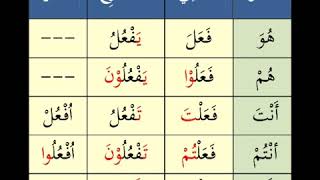 هُوَ فَعَلَ يَفْعُلُ ---
هُمْ فَعَلُوْا يَفْعُلُوْنَ ---
أَنْتَ فَعَلْتَ تَفْعُلُ اُفْعُلْ
أَنْتُمْ فَعَلْتُمْ تَفْعُلُوْنَ اُفْعُلُوا